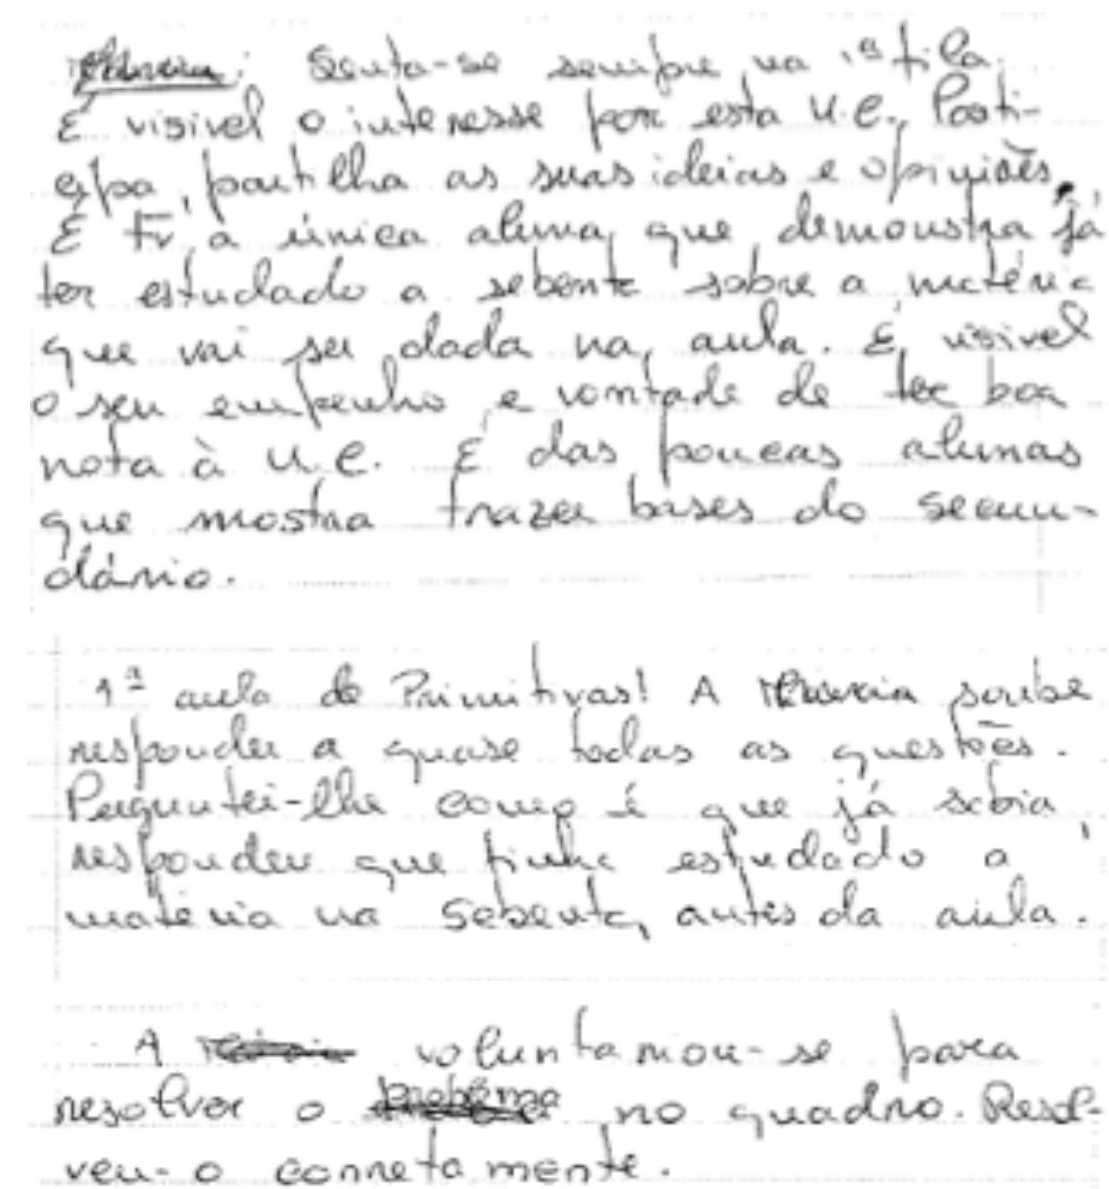 : Senta-se sempre na 1ª fila.
É visivel o interesse por esta U.C., Parti-
cipa, partilha as suas ideias e opiniões.
É a única aluna que demonstra já
ter estudado a sebenta sobre a matéria
que vai ser dada na aula. É visivel
o seu empenho e vontade de ter boa
nota à U.C. É das poucas alunas
que mostra trazer bases do secun-
dário.
1ª aula de Primitivas! A soube
responder a quase todas as questões.
Perguntei-lhe como é que já sabia,
respondeu que tinha estudado a
matéria na sebenta, antes da aula.
A voluntariou-se para
resolver o problema no quadro. Resol-
veu-o corretamente.